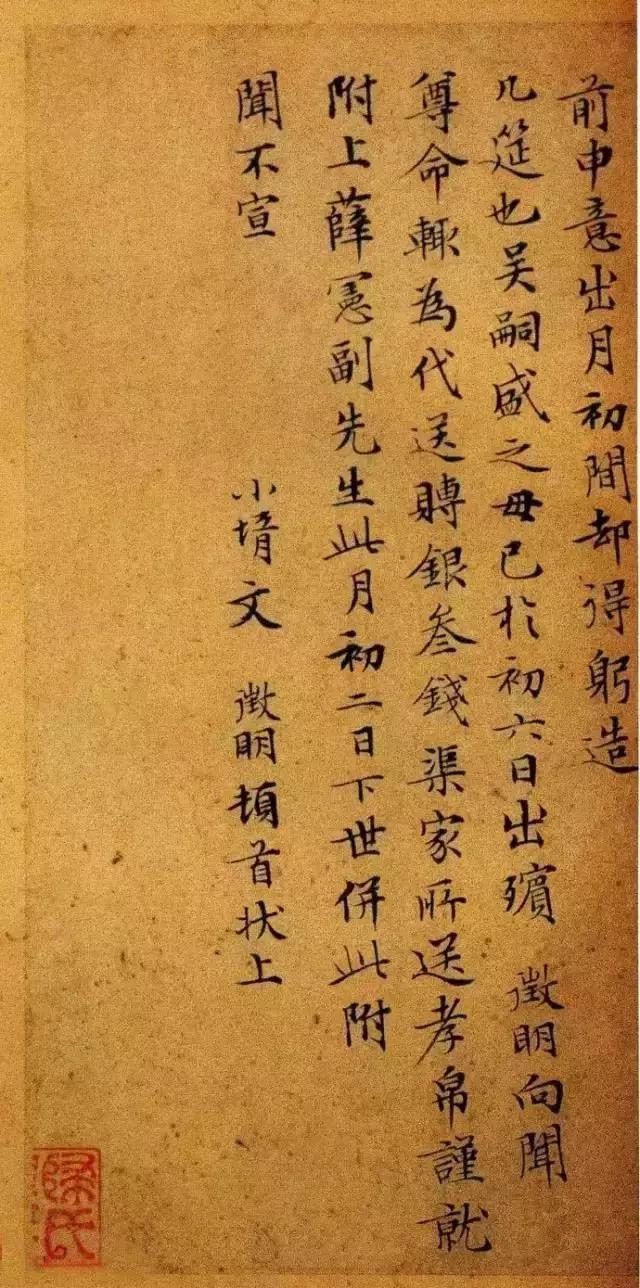 前申意出月初間却得躬造
几筵也吴嗣盛之母已於初六日出殯 徵明向聞
尊命輙為代送賻銀叁錢渠家所送孝帛謹就
附上薛憲副先生此月初二日下世併此附
聞不宣
小壻文 徵明頓首状上